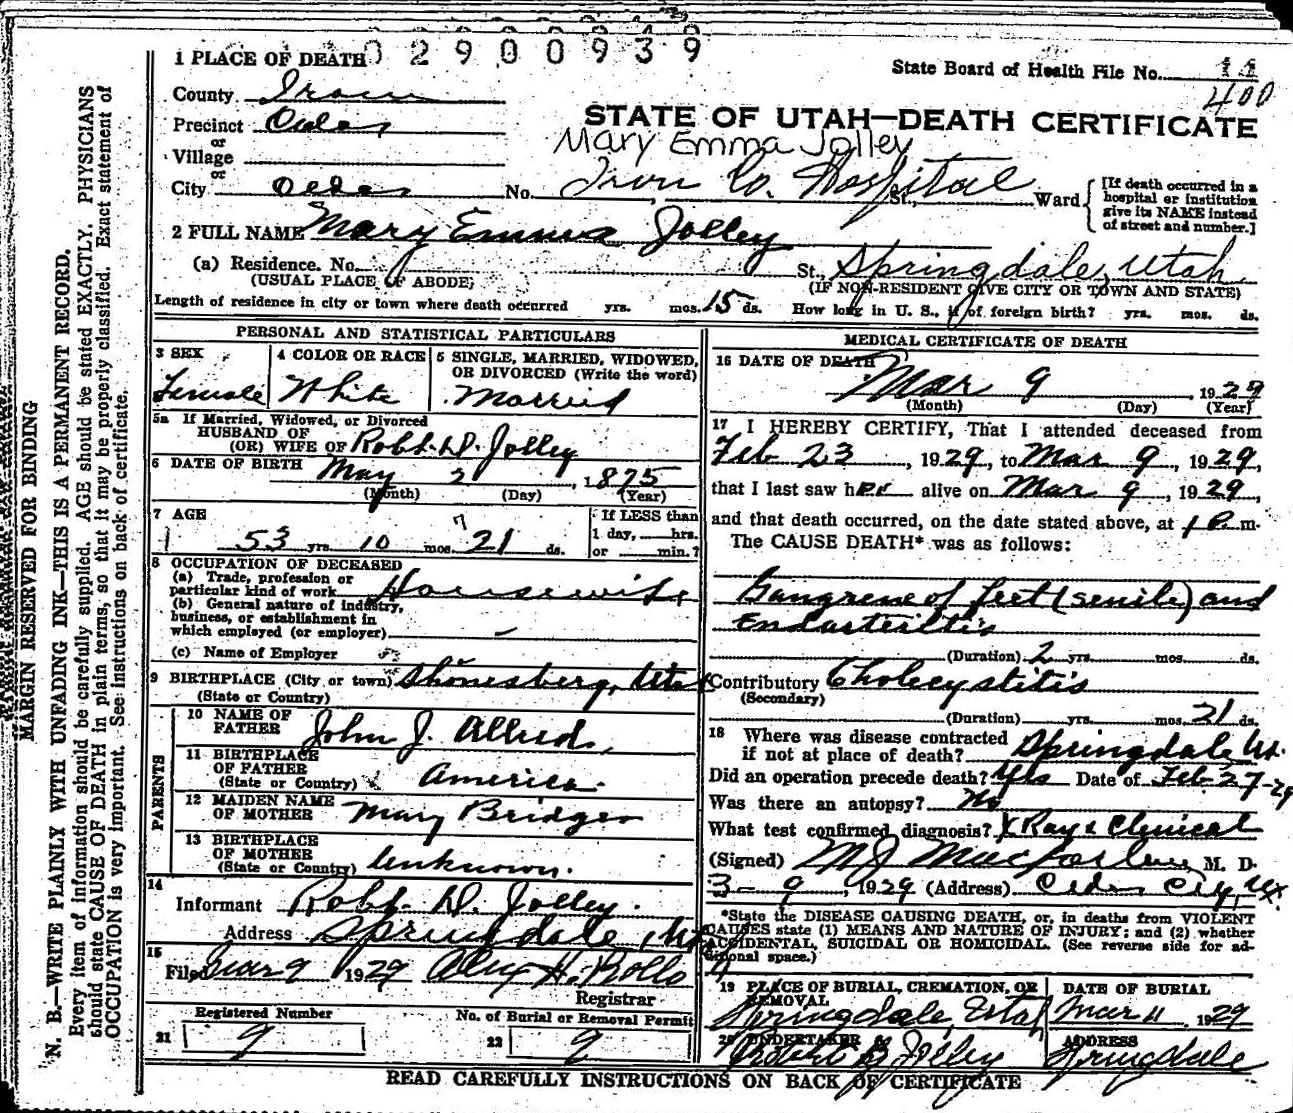 0 2 9 0 0 9 3 9
1 PLACE OF DEATH
State Board of Health File No. 11
400
County Iron
STATE OF UTAH—DEATH CERTIFICATE
Precinct Cedar
Mary Emma Jolley
or
Village
or
City Cedar No. Iron Co. Hospital St., Ward
[If death occurred in a
hospital or institution
give its NAME instead
of street and number.]
2 FULL NAME Mary Emma Jolley
(a) Residence. No. St., Springdale, Utah
(USUAL PLACE OF ABODE) (IF NON-RESIDENT GIVE CITY OR TOWN AND STATE)
Length of residence in city or town where death occurred yrs. mos. 15 ds. How long in U. S., if of foreign birth? yrs. mos. ds.
PERSONAL AND STATISTICAL PARTICULARS
3 SEX 4 COLOR OR RACE 5 SINGLE, MARRIED, WIDOWED,
OR DIVORCED (Write the word)
Female White Married
5a If Married, Widowed, or Divorced
HUSBAND OF
(OR) WIFE OF Robt. D. Jolley
6 DATE OF BIRTH May 2, 1875
(Month) (Day) (Year)
7 AGE If LESS than
53 yrs. 10 mos. 7 21 ds. 1 day, hrs.
or min.?
8 OCCUPATION OF DECEASED
(a) Trade, profession or
particular kind of work Housewife
(b) General nature of industry,
business, or establishment in
which employed (or employer) –
(c) Name of Employer
9 BIRTHPLACE (City or town) Shonesberg, Utah
(State or Country)
PARENTS
10 NAME OF
FATHER John J. Allred
11 BIRTHPLACE
OF FATHER
(State or Country) America
12 MAIDEN NAME
OF MOTHER Mary Bridges
13 BIRTHPLACE
OF MOTHER
(State or Country) Unknown.
14
Informant Robt. D. Jolley.
Address Springdale, Ut
15
Filed Mar 9 1929 Alex H. Rollo
Registrar
Registered Number No. of Burial or Removal Permit
21 9 22 9
MEDICAL CERTIFICATE OF DEATH
16 DATE OF DEATH
Mar 9, 1929
(Month) (Day) (Year)
17 I HEREBY CERTIFY, That I attended deceased from
Feb 23, 1929, to Mar 9, 1929,
that I last saw her alive on Mar 9, 1929,
and that death occurred, on the date stated above, at 1 P. m.
The CAUSE DEATH* was as follows:
Gangrene of feet (senile) and
Endarteritis
(Duration) 2 yrs. mos. ds.
Contributory Cholecystitis
(Secondary)
(Duration) yrs. mos. 21 ds.
18 Where was disease contracted
if not at place of death? Springdale Ut.
Did an operation precede death? Yes Date of Feb 27-29
Was there an autopsy? No
What test confirmed diagnosis? X Ray & Clinical
(Signed) M J Macfarlane, M. D.
3-9, 1929 (Address) Cedar City, Ut.
*State the DISEASE CAUSING DEATH, or, in deaths from VIOLENT
CAUSES state (1) MEANS AND NATURE OF INJURY; and (2) whether
ACCIDENTAL, SUICIDAL OR HOMICIDAL. (See reverse side for ad-
ditional space.)
19 PLACE OF BURIAL, CREMATION, OR
REMOVAL DATE OF BURIAL
Springdale, Utah Mar 11 1929
20 UNDERTAKER ADDRESS
Jolley Springdale
READ CAREFULLY INSTRUCTIONS ON BACK OF CERTIFICATE
MARGIN RESERVED FOR BINDING
N. B.—WRITE PLAINLY WITH UNFADING INK—THIS IS A PERMANENT RECORD.
Every item of information should be carefully supplied. AGE should be stated EXACTLY. PHYSICIANS
should state CAUSE OF DEATH in plain terms, so that it may be properly classified. Exact statement of
OCCUPATION is very important. See instructions on back of certificate.